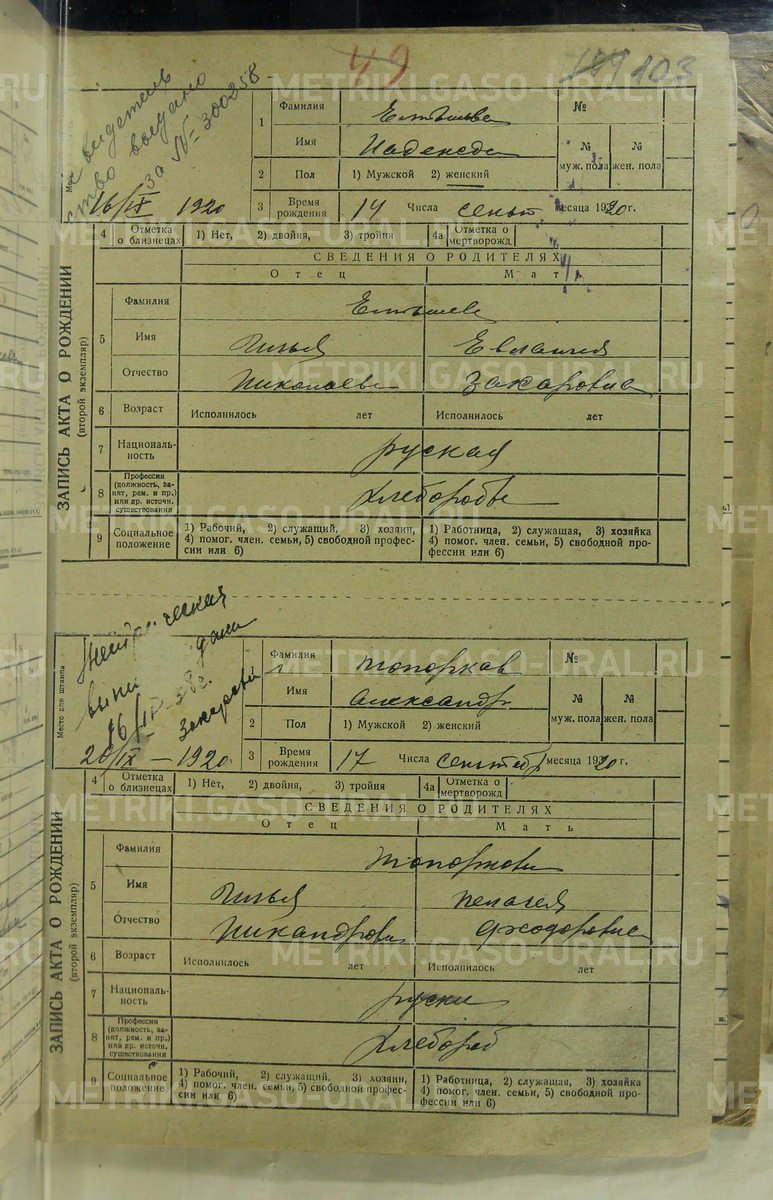 49
103
METRIKI.GASO-URAL.RU
свидетель
ство выдано
за № 300258
16/IX 1920
1
Фамилия
Елтышева
№
Имя
Надежда
№ муж. пола
№ жен. пола
2
Пол
1) Мужской 2) женский
3
Время рождения
14 Числа сент месяца 1920г.
4
Отметка о близнецах
1) Нет, 2) двойня, 3) тройня
4а
Отметка о мертворожд.
ЗАПИСЬ АКТА О РОЖДЕНИИ
(второй экземпляр)
СВЕДЕНИЯ О РОДИТЕЛЯХ
Отец
Мат
5
Фамилия
Елтышеве
Имя
Илья
Евлампия
Отчество
Николаеве
Захаровна
6
Возраст
Исполнилось лет
Исполнилось лет
7
Националь-
ность
руская
8
Профессия
(должность, за-
нят, рем. и пр.)
или др. источн.
существования
хлеборобы
9
Социальное
положение
1) Рабочий, 2) служащий, 3) хозяин,
4) помог. член. семьи, 5) свободной профес-
сии или 6)
1) Работница, 2) служащая, 3) хозяйка
4) помог. член. семьи, 5) свободной про-
фессии или 6)
Место для штампа
20/IX — 1920
1
Фамилия
Топорков
№
Имя
Александр
№ муж. пола
№ жен. пола
2
Пол
1) Мужской 2) женский
3
Время рождения
17 Числа сентябр месяца 1920г.
4
Отметка о близнецах
1) Нет, 2) двойня, 3) тройня
4а
Отметка о мертворожд.
ЗАПИСЬ АКТА О РОЖДЕНИИ
(второй экземпляр)
СВЕДЕНИЯ О РОДИТЕЛЯХ
Отец
Мать
5
Фамилия
Топоркови
Имя
Илья
Пелагея
Отчество
Никандрови
Фходоровна
6
Возраст
Исполнилось лет
Исполнилось лет
7
Националь-
ность
руски
8
Профессия
(должность, за-
нят, рем. и пр.)
или др. источн.
существования
хлебороб
9
Социальное
положение
1) Рабочий, 2) служащий, 3) хозяин,
4) помог. член. семьи, 5) свободной профес-
сии или 6)
1) Работница, 2) служащая, 3) хозяйка
4) помог. член. семьи, 5) свободной про-
фессии или 6)